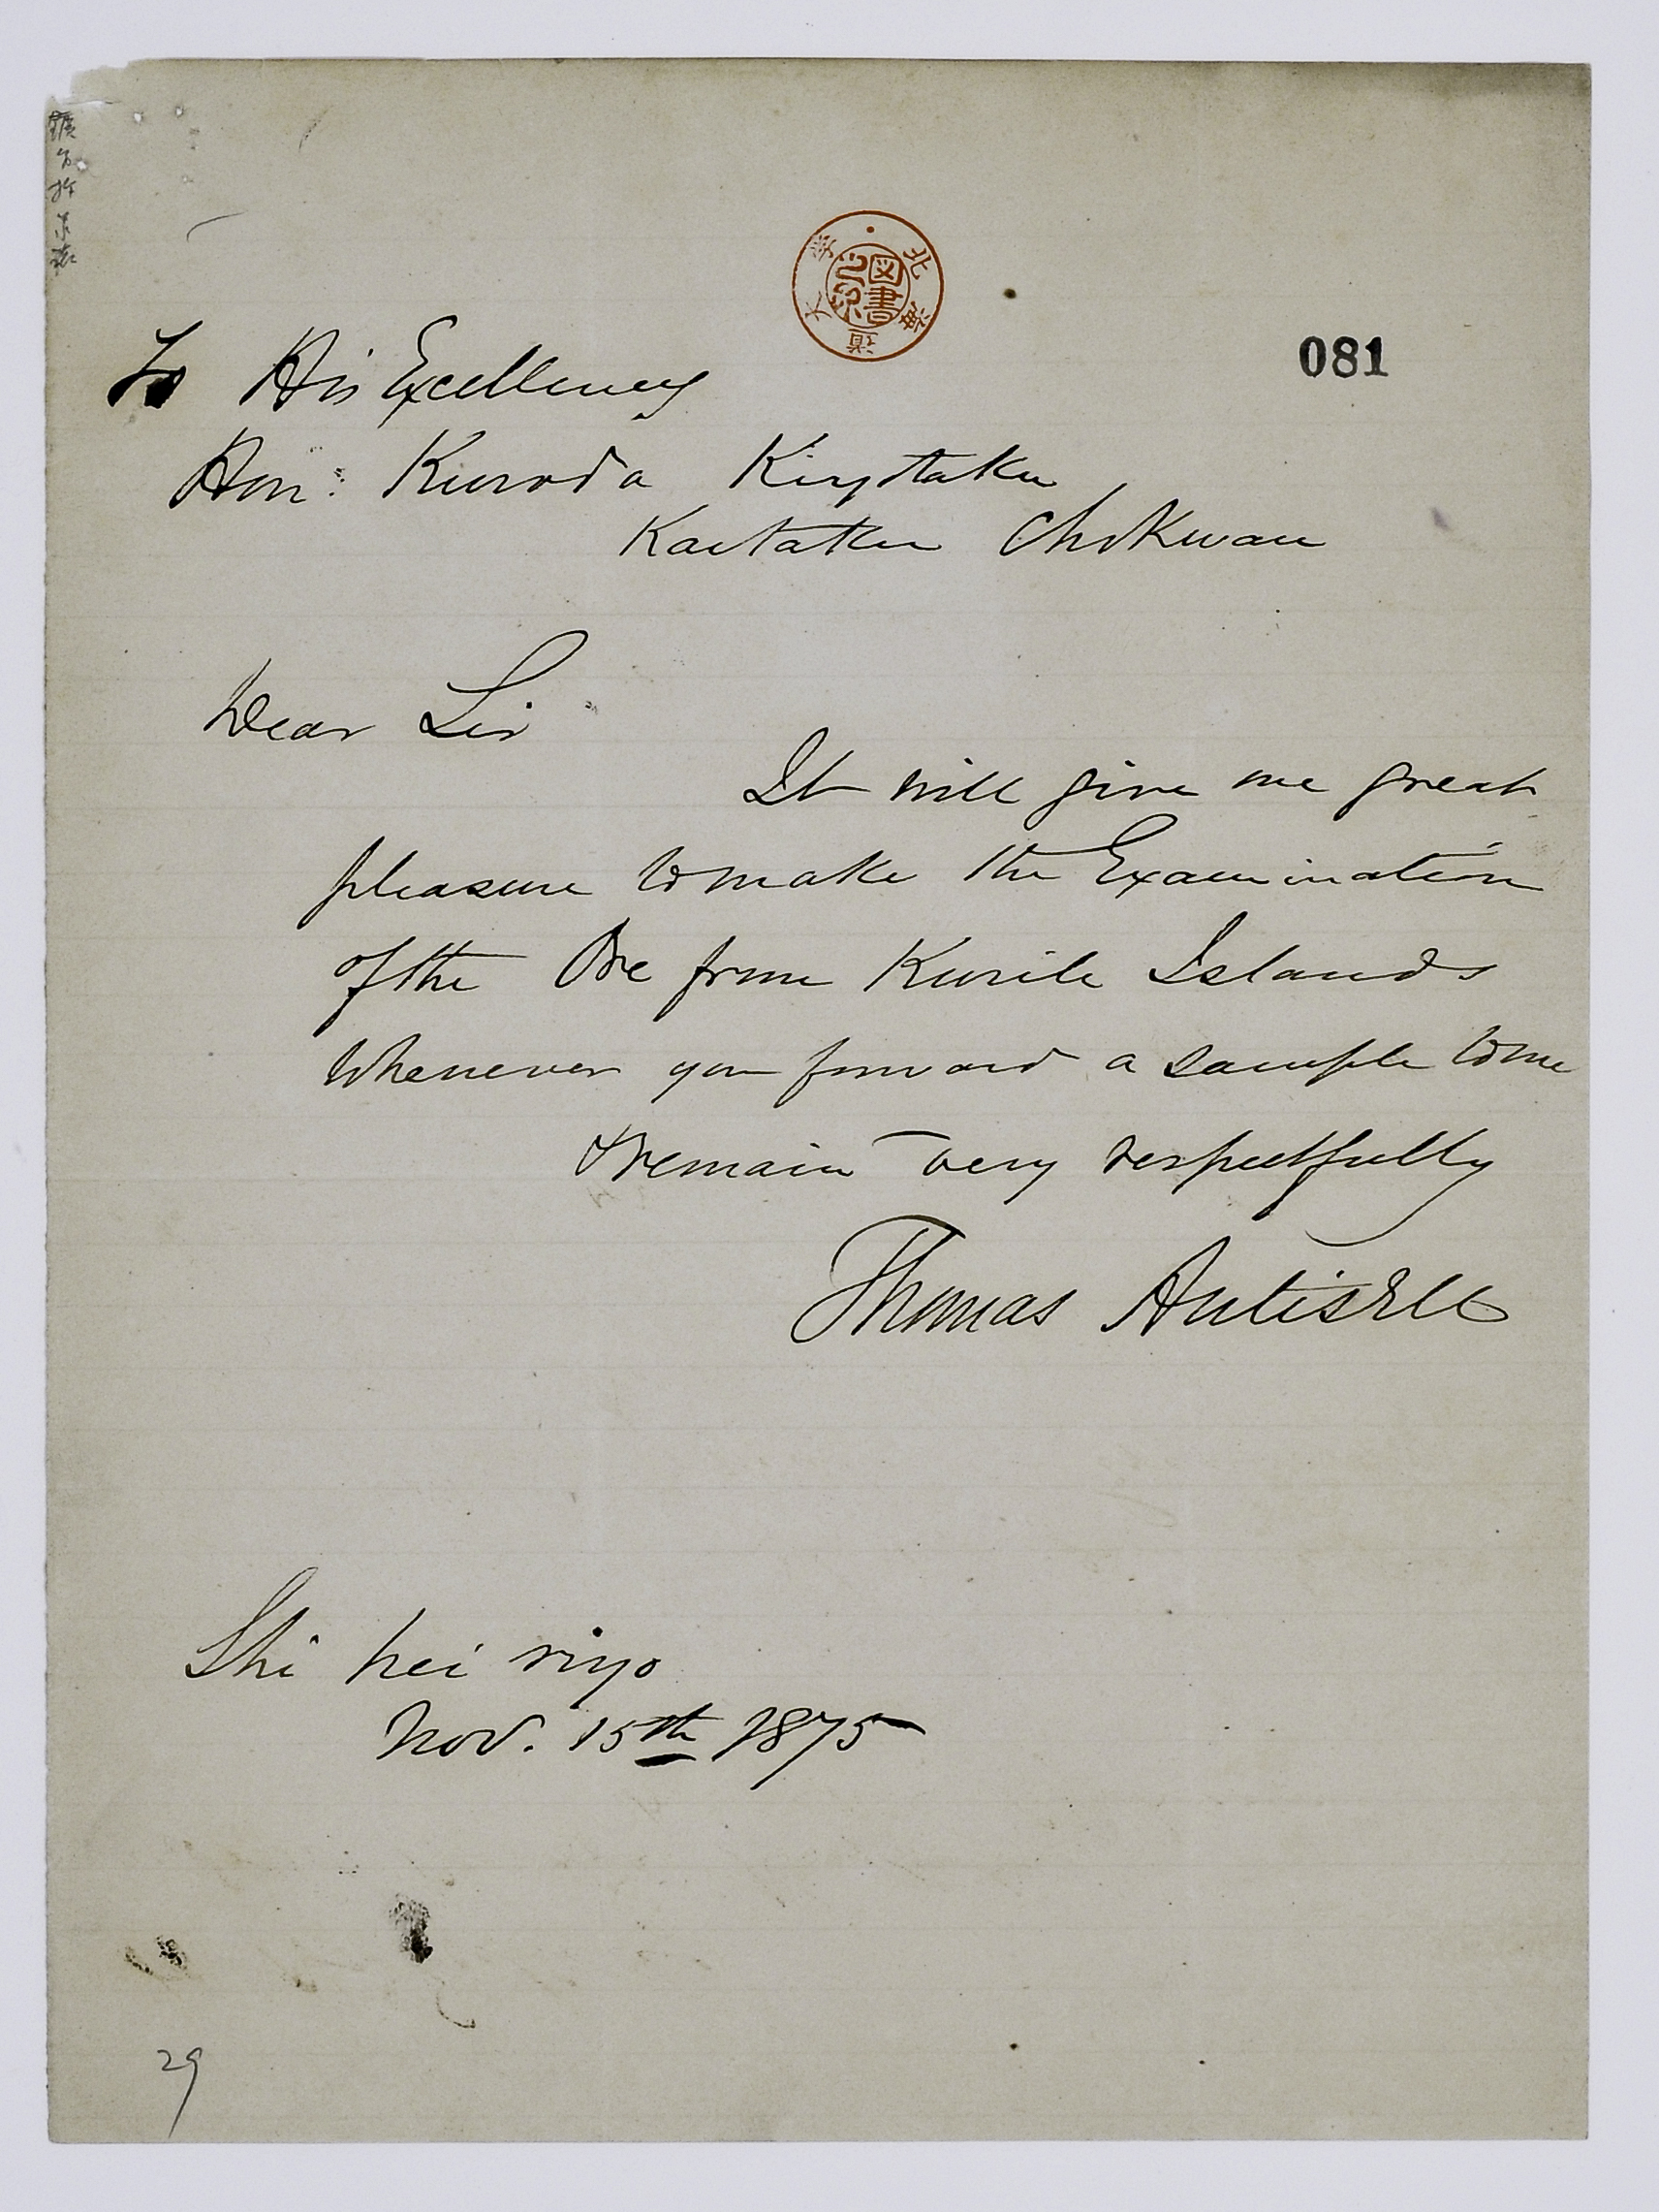 081
To His Excellency
Hon: Kuroda Kiytaku
Kaitaku Chokwan
Dear Sir
It will give me great
pleasure to make the Examination
of the Ore from Kurile Islands
Whenever you forward a sample to me
I remain very respectfully
Thomas Antisell
Shi hei riyo
Nov. 15th 1875
29
北海道大学
図書之印